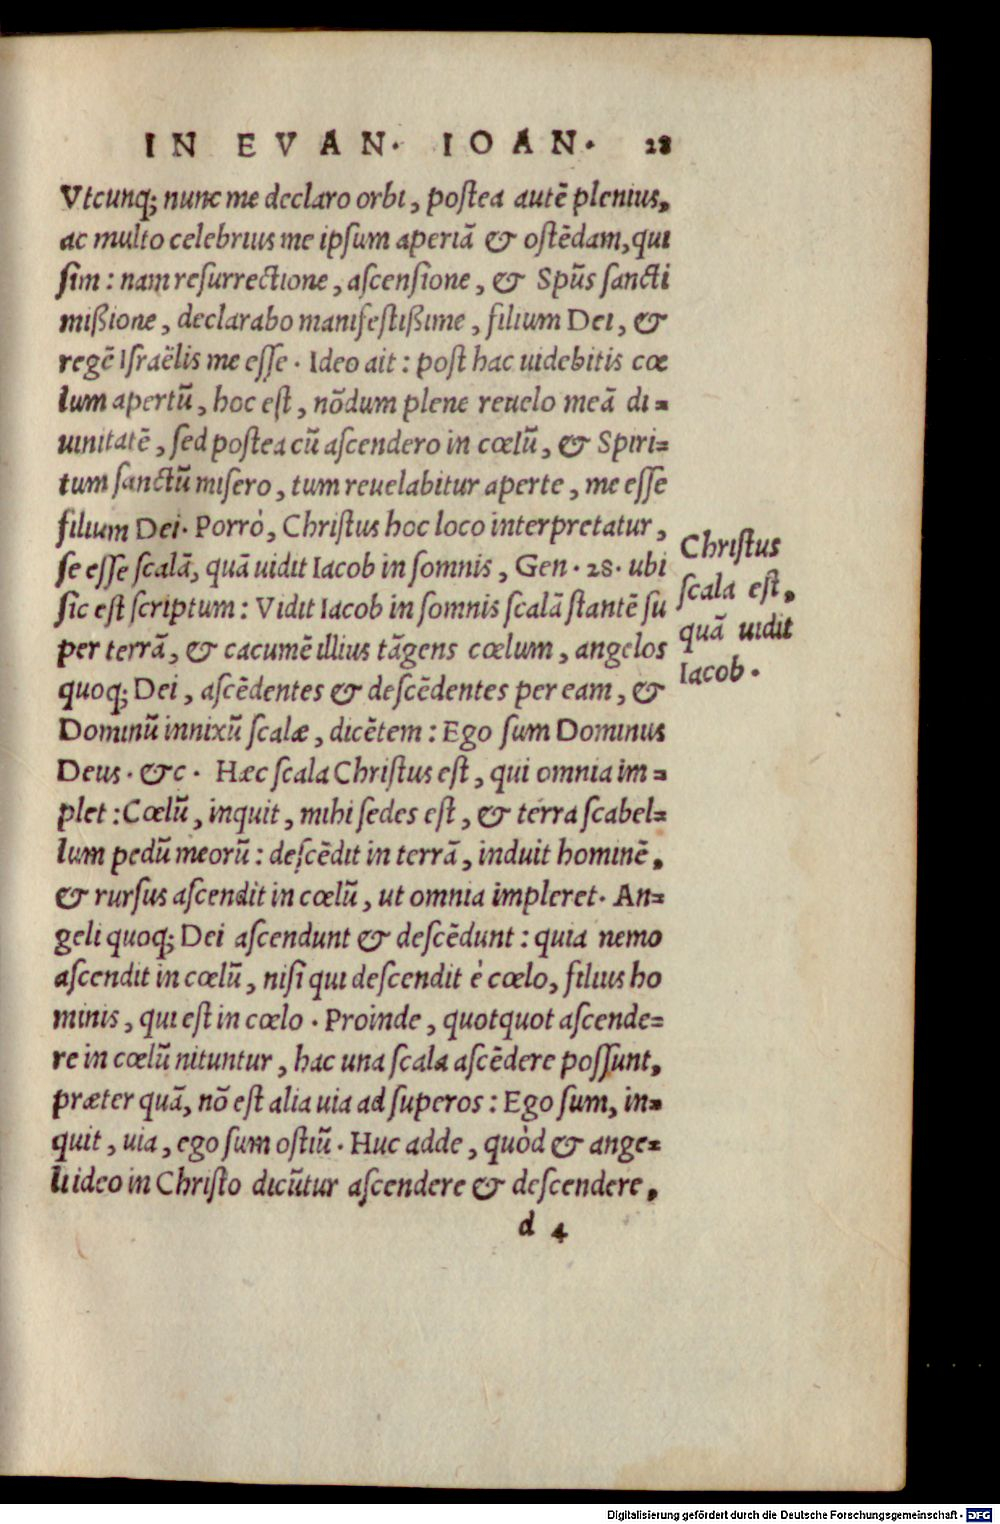 IN EVAN. IOAN. 28
Vtcunq; nunc me declaro orbi, postea autē plenius,
ac multo celebrius me ipsum aperiā & ostēdam, qui
sim: nam resurrectione, ascensione, & Spūs sancti
mißione, declarabo manifestißime, filium Dei, &
regē Israëlis me esse. Ideo ait: post hac uidebitis cœ
lum apertū, hoc est, nōdum plene reuelo meā di=
uinitatē, sed postea cū ascendero in cœlū, & Spiri=
tum sanctū misero, tum reuelabitur aperte, me esse
filium Dei. Porrò, Christus hoc loco interpretatur,
se esse scalā, quā uidit Iacob in somnis, Gen. 28. ubi
sic est scriptum: Vidit Iacob in somnis scalā stantē su
per terrā, & cacumē illius tāgens cœlum, angelos
quoq; Dei, ascēdentes & descēdentes per eam, &
Dominū innixū scalæ, dicētem: Ego sum Dominus
Deus. &c. Hæc scala Christus est, qui omnia im=
plet: Cœlū, inquit, mihi sedes est, & terra scabel=
lum pedū meorū: descēdit in terrā, induit hominē,
& rursus ascendit in cœlū, ut omnia impleret. An=
geli quoq; Dei ascendunt & descēdunt: quia nemo
ascendit in cœlū, nisi qui descendit è cœlo, filius ho
minis, qui est in cœlo. Proinde, quotquot ascende=
re in cœlū nituntur, hac una scala ascēdere possunt,
præter quā, nō est alia uia ad superos: Ego sum, in=
quit, uia, ego sum ostiū. Huc adde, quòd & ange=
li ideo in Christo dicūtur ascendere & descendere,
d 4
Christus
scala est,
quā uidit
Iacob.
Digitalisierung gefördert durch die Deutsche Forschungsgemeinschaft - DFG